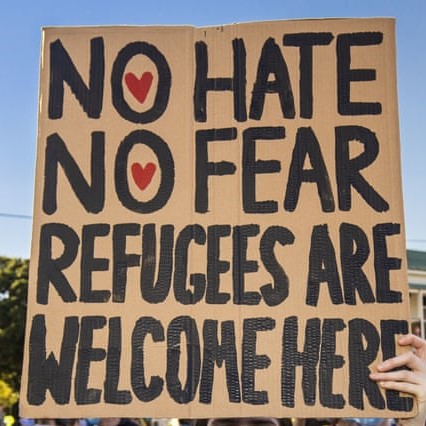 NO HATE
NO FEAR
REFUGEES ARE
WELCOME HERE